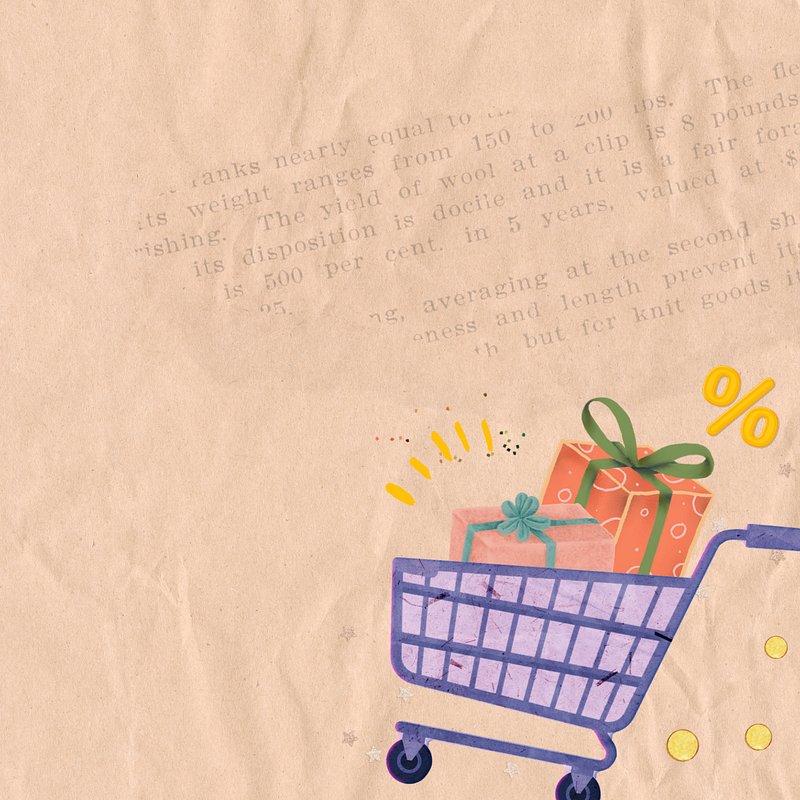 ranks nearly equal to
its weight ranges from 150 to 200 lbs. The
The yield of wool at a clip is 8 pounds
its disposition is docile and it is a fair
is 500 per cent. in 5 years, valued at $
25.
averaging at the second
and length prevent
but for knit goods
%